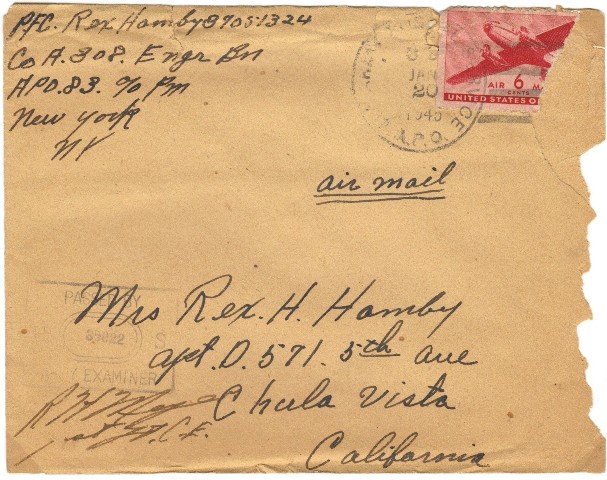 PFC. Rex Hamby 39051324
Co A. 308. Engr Bn
APO. 83. % Pm
New york
NY
JAN
20
1945
AIR 6 M
CENTS
UNITED STATES O
air mail
PASSED BY
S
EXAMINER
Mrs Rex. H. Hamby
apt. D. 571. 5th ave
Chula Vista
California